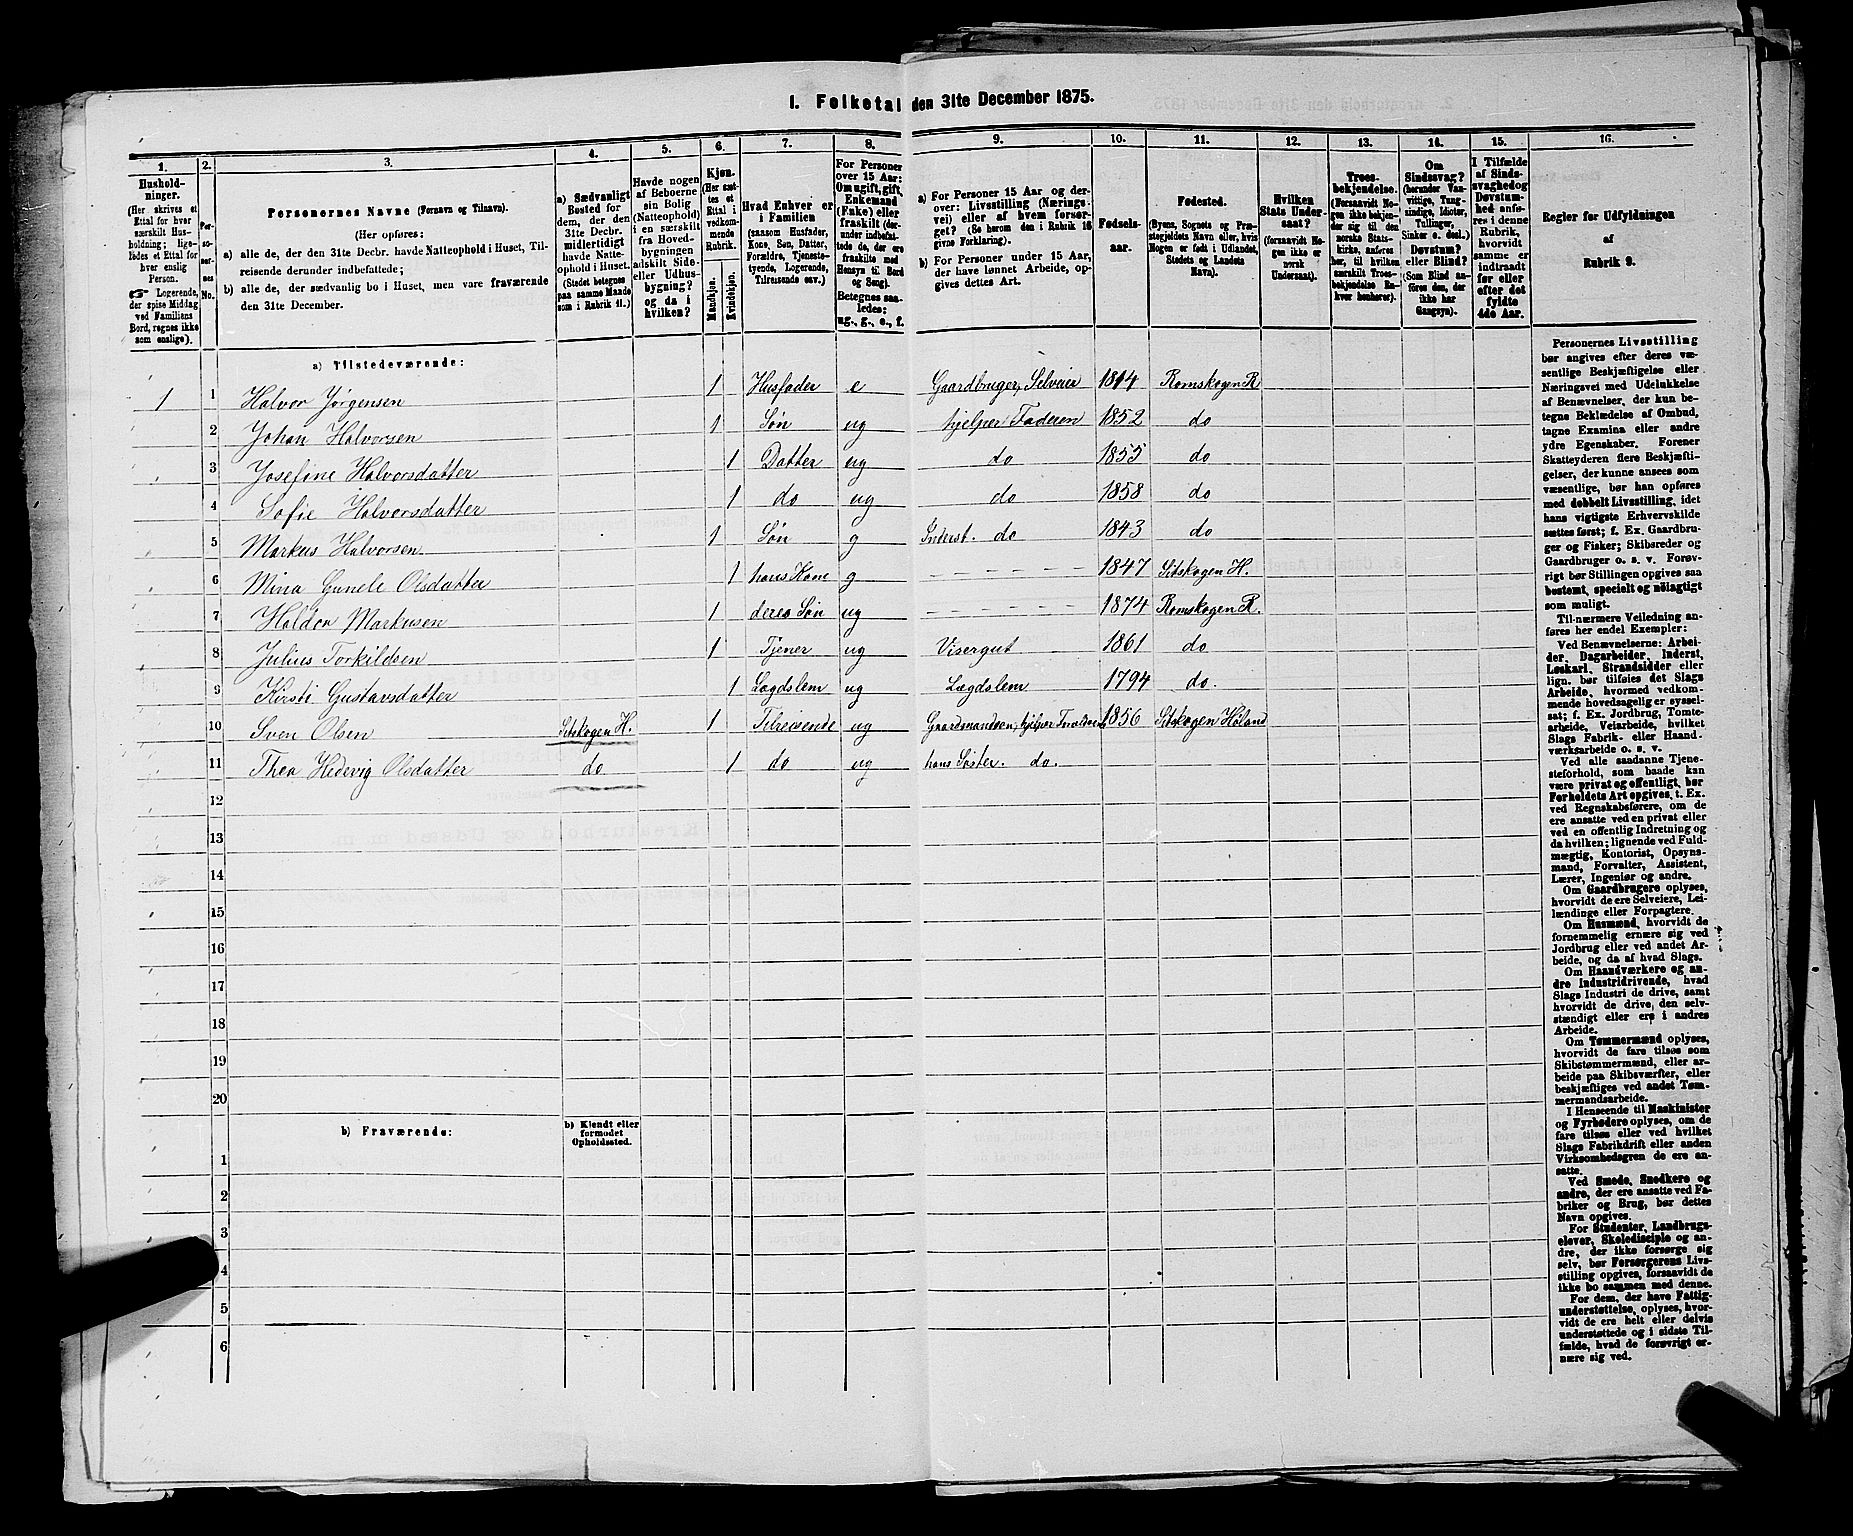 I. Folketal den 31te December 1875.
1. 2. 3. 4. 5. 6. 7. 8. 9. 10. 11. 12. 13. 14. 15. 16.
Hushold-
ninger.
(Her skrives et
Ettal for hver
særskilt Hus-
holdning; lige-
ledes et Ettal for
hver enslig
Person.
☞ Logerende,
der spise Middag
ved Familiens
Bord, regnes ikke
som enslige).
Per-
so-
ner-
nes
No.
Personernes Navne (Fornavn og Tilnavn).
(Her opføres:
a) alle de, der den 31te Decbr. havde Natteophold i Huset, Til-
reisende derunder indbefattede;
b) alle de, der sædvanlig bo i Huset, men vare fraværende
den 31te December.
a) Sædvanligt
Bosted for
dem, der den
31te Decbr.
midlertidigt
havde Natte-
ophold i Huset.
(Stedet betegnes
paa samme Maade
som i Rubrik 11.)
Havde nogen
af Beboerne
sin Bolig
(Natteophold)
i en særskilt
fra Hoved-
bygningen
adskilt Side-
eller Udhus-
bygning?
og da i
hvilken?
Kjøn.
(Her sæt-
tes et
Ettal i
vedkom-
mende
Rubrik.
Mandkjøn.
Kvindekjøn.
Hvad Enhver er
i Familien
(saasom Husfader,
Kone, Søn, Datter,
Forældre, Tjeneste-
tyende, Logerende,
Tilreisende osv.)
For Personer
over 15 Aar:
Om ugift, gift,
Enkemand
(Enke) eller
fraskilt (der-
under indbefat-
tede de, der ere
fraskilte med
Hensyn til Bord
og Seng).
Betegnes saa-
ledes:
ug., g., e., f.
a) For Personer 15 Aar og der-
over: Livsstilling (Nærings-
vei) eller af hvem forsør-
get? (Se herom den i Rubrik 16
givne Forklaring).
b) For Personer under 15 Aar,
der have lønnet Arbeide, op-
gives dettes Art.
Fødsels-
aar.
Fødested.
(Byens, Sognets og Præ-
stegjeldets Navn eller, hvis
Nogen er født i Udlandet,
Stedets og Landets
Navn).
Hvilken
Stats Under-
saat?
(forsaavidt No-
gen ikke er
norsk
Undersaat).
Troes-
bekjendelse.
(Forsaavidt No-
gen ikke bekjen-
der sig til den
norske Stats-
kirke, anføres
her, til hvilken
særskilt Troes-
bekjendelse Ra-
hver henhører).
Om
Sindssvag?
(herunder Van-
vittige, Tung-
sindige, Idioter,
Tullinger,
Sinker o. desl.)
Døvstum?
eller Blind?
(Som Blind an-
føres den, der
ikke har
Gangsyn).
I Tilfælde
af Sinds-
svaghed og
Døvstum-
hed anfø-
res i denne
Rubrik,
hvorvidt
samme er
indtraadt
før eller
efter det
fyldte
4de Aar.
Regler for Udfyldningen
af
Rubrik 9.
a) Tilstedeværende:
1 1 Halvor Jørgensen 1 Husfader e Gaardbruger, Selveier 1814 Romskogen R
2 Johan Halvorsen 1 Søn ug hjelper Faderen 1852 do
3 Josefine Halvorsdatter 1 Datter ug do 1855 do
4 Sofie Halvorsdatter 1 do ug do 1858 do
5 Markus Halvorsen 1 Søn g Inderst. do 1843 do
6 Mina Gunele Olsdatter 1 hans Kone g - - - - - - 1847 Sitskogen H.
7 Haldor Markusen 1 deres Søn ug - - - - - - 1874 Romskogen R.
8 Julius Torkildsen 1 Tjener ug Visergut 1861 do
9 Kirsti Gustavsdatter 1 Lægdslem ug Lægdslem 1794 do.
10 Sven Olsen Sitskogen H. 1 Tilreisende ug Gaardmandsøn, hjelper 1856 Sitskogen Høland
11 Thea Hedevig Olsdatter do 1 do ug hans Søster. do.
12
13
14
15
16
17
18
19
20
b) Fraværende:
b) Kjendt eller
formodet
Opholdssted.
1
2
3
4
5
6
Personernes Livsstilling
bør angives efter deres væ-
sentlige Beskjæftigelse eller
Næringsvei med Udelukkelse
af Benævnelser, der kun be-
tegne Beklædelse af Ombud,
tagne Examina eller andre
ydre Egenskaber. Forener
Skatteyderen flere Beskjæfti-
gelser, der kunne ansees som
væsentlige, bør han opføres
med dobbelt Livsstilling, idet
hans vigtigste Erhvervskilde
sættes først; f. Ex. Gaardbru-
ger og Fisker; Skibsreder og
Gaardbruger o. s. v. Forøv-
rigt bør Stillingen opgives saa
bestemt, specielt og nøiagtigt
som muligt.
Til nærmere Veiledning an-
føres her endel Exempler:
Ved Benævnelserne: Arbei-
der, Dagarbeider, Inderst,
Løskarl, Strandsidder eller
lign. bør tilføies det Slags
Arbeide, hvormed vedkom-
mende hovedsagelig er syssel-
sat; f. Ex. Jordbrug, Tomte-
arbeide, Veiarbeide, hvilket
Slags Fabrik- eller Haand-
værksarbeide o. s. v.
Ved alle saadanne Tjene-
steforhold, som baade kan
være privat og offentligt, bør
Forholdets Art opgives, t. Ex.
ved Regnskabsførere, om de
ere ansatte ved en privat eller
ved en offentlig Indretning og
da hvilken; lignende ved Fuld-
mægtig, Kontorist, Opsyns-
mand, Forvalter, Assistent,
Lærer, Ingeniør og andre.
Om Gaardbrugere oplyses,
hvorvidt de ere Selveiere, Lei-
lændinge eller Forpagtere.
Om Husmænd, hvorvidt de
fornemmelig ernære sig ved
Jordbrug eller ved andet Ar-
beide, og da af hvad Slags.
Om Haandværkere og an-
dre Industridrivende, hvad
Slags Industri de drive, samt
hvorvidt de drive den selv-
stændigt eller ere i andres
Arbeide.
Om Tømmermænd oplyses,
hvorvidt de fare tilsøs som
Skibstømmermænd, eller ar-
beide paa Skibsværfter, eller
beskjæftiges ved andet Tøm-
mermandsarbeide.
I Henseende til Maskinister
og Fyrbødere oplyses, om de
fare tilsøs eller ved hvilket
Slags Fabrikdrift eller anden
Virksomhedsgren de ere an-
satte.
Ved Smede, Snedkere og
andre, der ere ansatte ved Fa-
briker og Brug, bør dettes
Navn opgives.
For Studenter, Landbrugs-
elever, Skoledisciple og an-
dre, der ikke forsørge sig
selv, bør Forsørgerens Livs-
stilling opgives, forsaavidt de
ikke bo sammen med denne.
For dem, der have Fattig-
understøttelse, oplyses, hvor-
vidt de ere helt eller delvis
understøttede og i sidste Til-
fælde, hvad de forøvrigt er-
nære sig ved.